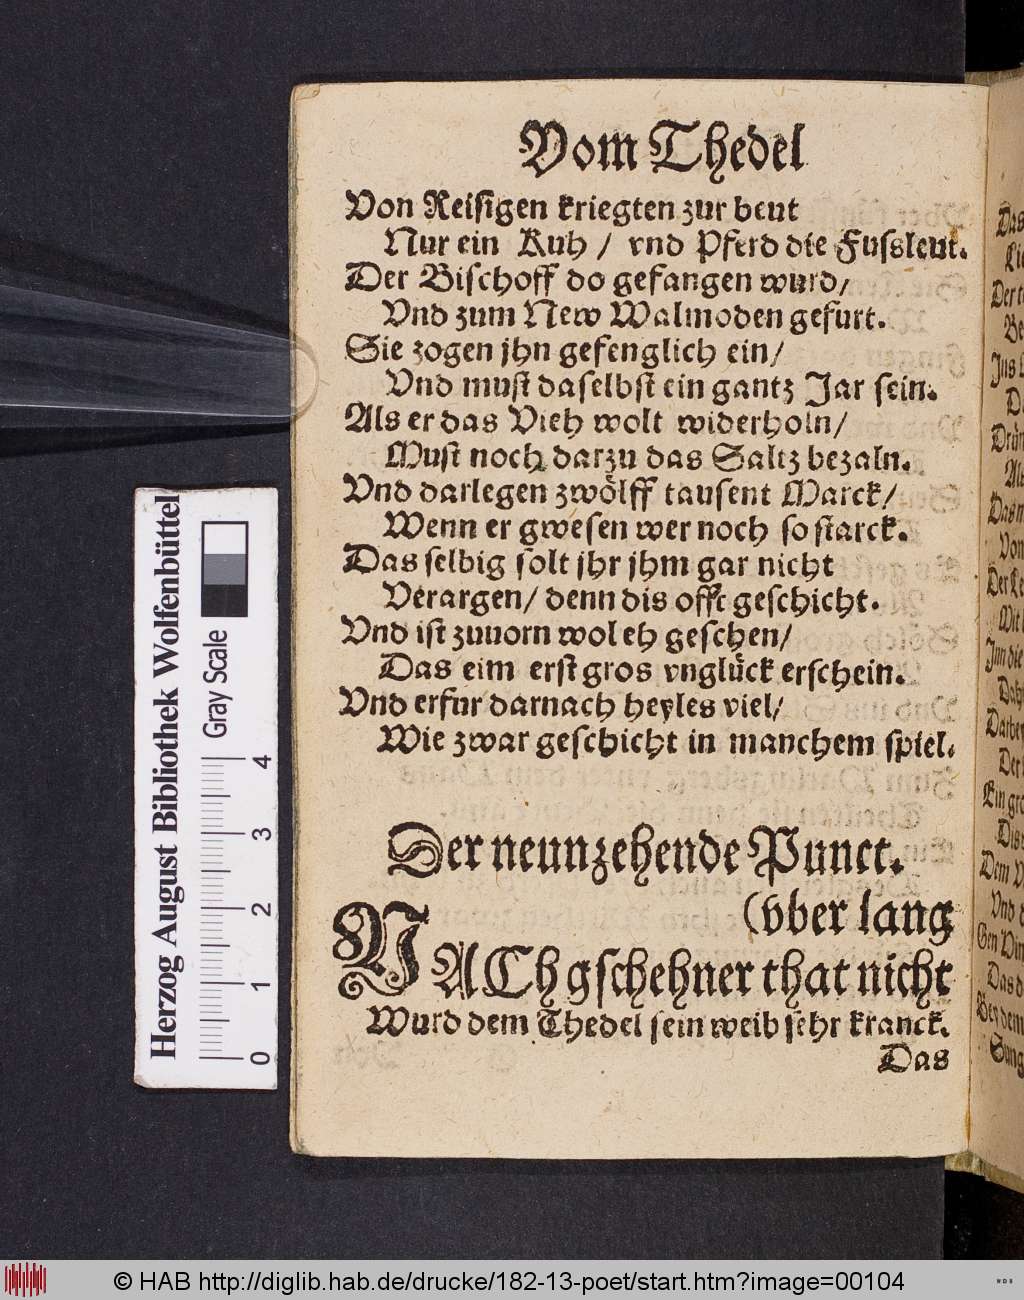 Vom Thedel
Von Reisigen kriegten zur beut
Nur ein Kuh / vnd Pferd die Fussleut.
Der Bischoff do gefangen wurd /
Vnd zum New Walmoden gefurt.
Sie zogen jhn gefenglich ein /
Vnd must daselbst ein gantz Jar sein.
Als er das Vieh wolt widerholn /
Must noch darzu das Saltz bezaln.
Vnd darlegen zwölff tausent Marck /
Wenn er gwesen wer noch so starck.
Das selbig solt jhr jhm gar nicht
Verargen / denn dis offt geschicht.
Vnd ist zuuorn wol eh geschen /
Das eim erst gros vnglück erschein.
Vnd erfur darnach heyles viel /
Wie zwar geschicht in manchem spiel.
Der neunzehende Punct.
(vber lang
NACh gschehner that nicht
Wurd dem Thedel sein weib sehr kranck.
Das
Herzog August Bibliothek Wolfenbüttel
Gray Scale
0 1 2 3 4
© HAB http://diglib.hab.de/drucke/182-13-poet/start.htm?image=00104